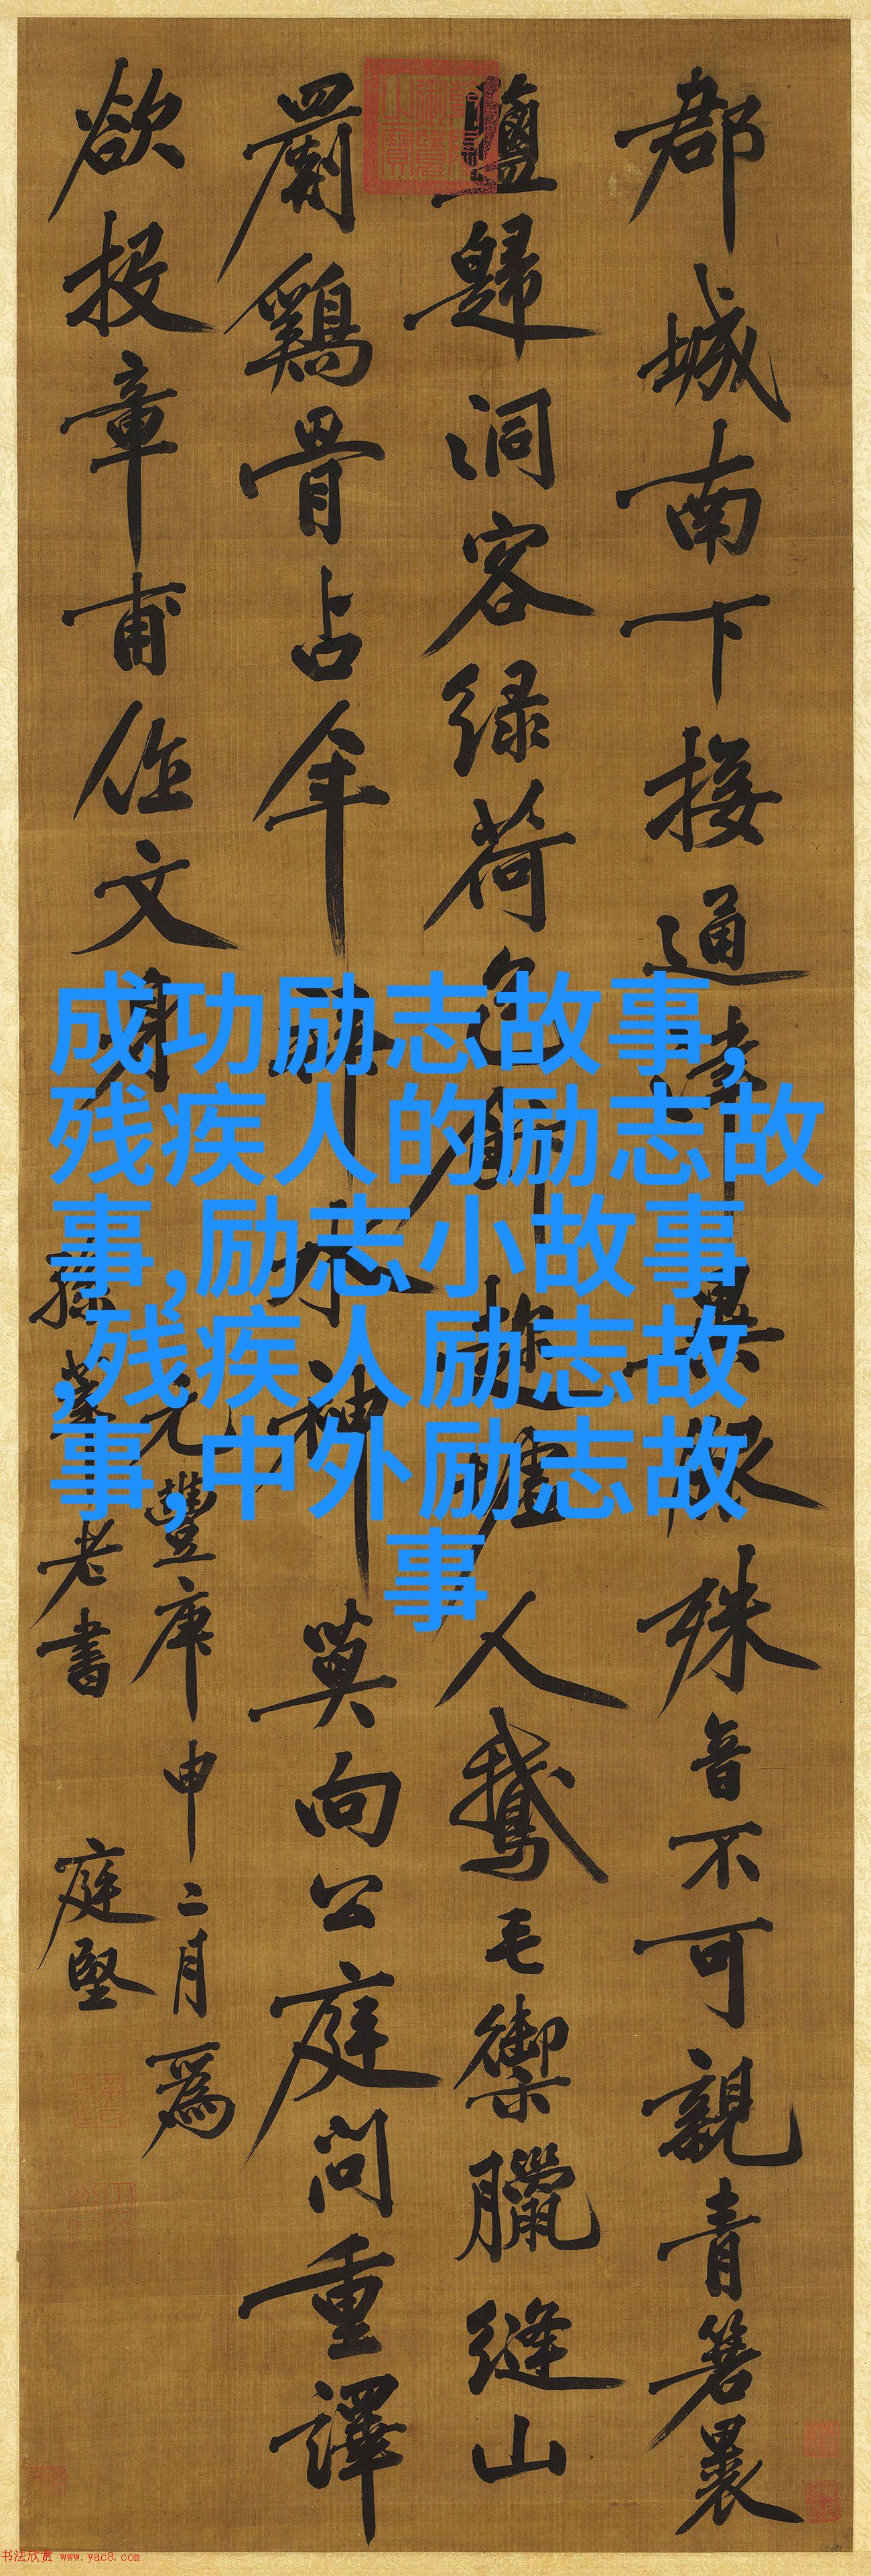 郡城南下接通津異服殊音不可親青箬裹
鹽歸洞客緑荷包飯趁墟人鵝毛禦臘縫山
罽鷄骨占年拜水神莫向公庭問重譯
欲投章甫作文身
元豐庚申二月爲
孫莘老書 庭堅
成功励志故事,
残疾人的励志故
事,励志小故事
,残疾人励志故
事,中外励志故
事
书法欣赏 www.yac8.com